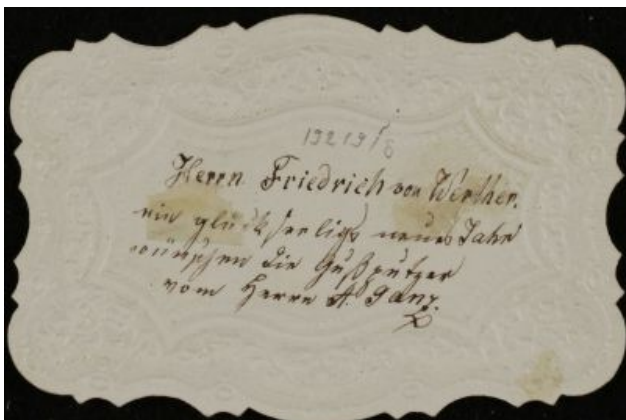 192191/8
Herrn Friedrich von Werther,
ein glückseliges neues Jahr
wünschen die Gußputzer
vom Herrn A. Ganz.